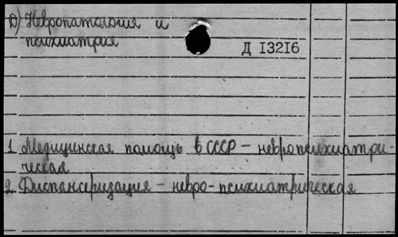 D) Невропатология и
психиатрия
Д 13216
1. Медицинская помощь в СССР - невропсихиатри-
ческая
2. Диспансеризация - невро-психиатрическая